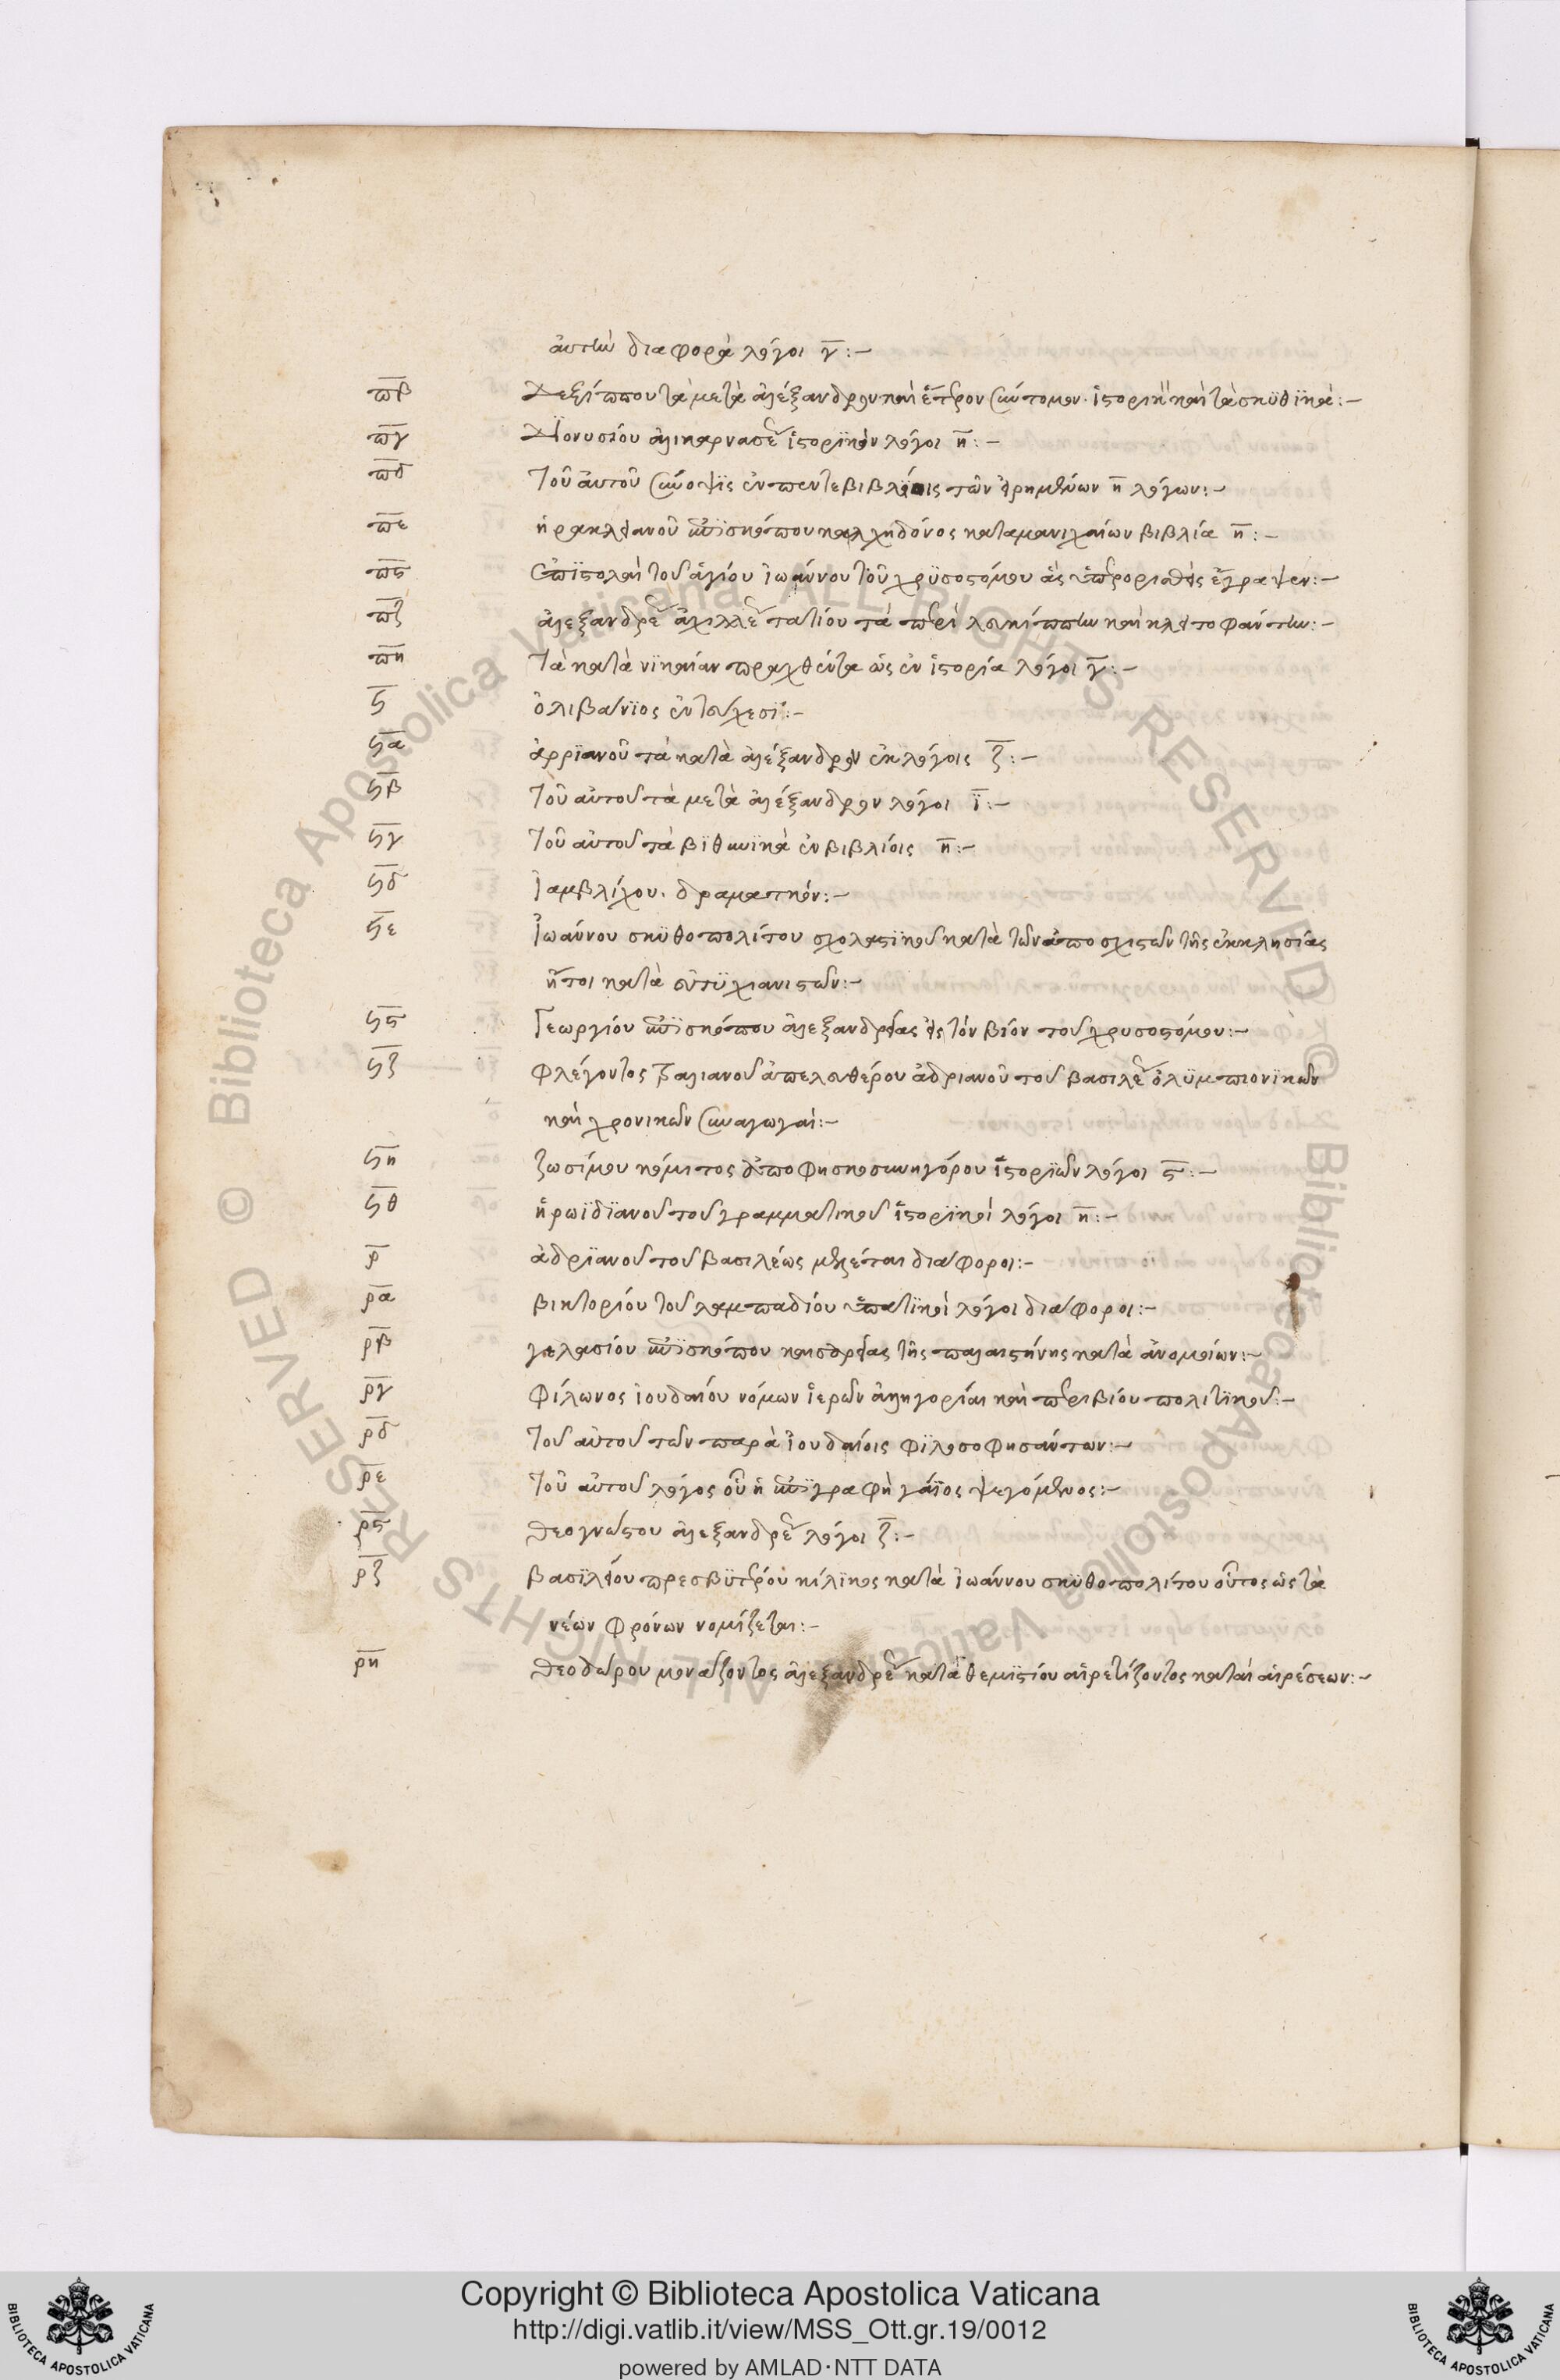 αὐτῶ διαφορὰ λόγοι γ̅:-
π̅β̅ Δεξίππου τὰ μετὰ ἀλέξανδρον καὶ ἕτερον σύντομον· ἱστορικὴ καὶ τὰ σκϋθϊκά:-
π̅γ̅ Διονυσίου ἀλικαρνασέ ἱστορϊκὸν λόγοι η̅:-
π̅δ̅ Τοῦ ἀυτοῦ σύνοψϊς ἐν πέντε βιβλίοις τῶν εἰρημένων η̅ λόγων:-
π̅ε̅ ἡρακλειανοῦ ἐπϊσκόπου καλχηδόνος κατα μανιχαίων βιβλία η̅:-
π̅ς̅ Ἐπϊστολαὶ τοῦ ἁγίου Ἰωάννου τοῦ χρϋσοστόμου ἃς ὑπεροριαθεὶς ἔγραψεν:-
π̅ζ̅ ἀλεξανδρέ ἀχιλλέ τατίου τὰ περὶ λευκίππων καὶ κλειτοφάντων:-
π̅η̅ Τὰ κατὰ νίκαίαν πραχθέντα ὡς ἐν ἱστορία λόγοι γ̅:-
ϟ̅ ὁλιβάνϊος ἐν τεύχεσϊ:-
ϟ̅α̅ ἀρρϊανοῦ τὰ κατὰ ἀλέξανδρον ἐκ λόγοις ζ̅:-
ϟ̅β̅ Τοῦ αὐτοῦ τὰ μετὰ ἀλέξανδρον λόγοι ι̅:-
ϟ̅γ̅ Τοῦ αὐτοῦ τὰ βϊθυνϊκὰ ἐν βιβλίοις η̅:-
ϟ̅δ̅ Ἰαμβλίχου· δραματικόν:-
ϟ̅ε̅ Ἰωάννου σκϋθοπολίτου σχολαστϊκοῦ κατὰ τῶν ἀποσχιστῶν τῆς ἐκκλησίας
ἤτοι κατὰ εὐτϋχιανιστῶν:-
ϟ̅ς̅ Γεωργίου ἐπϊσκόπου ἀλεξανδρείας εἰς τὸν βίον τοῦ χρυσοστόμου:-
ϟ̅ζ̅ Φλέγοντος Τραλιανοῦ ἀπελευθέρου ἀδριανοῦ τοῦ βασιλέ ὀλϋμπιονϊκῶν
καὶ χρονικῶν συναγωγαί:-
ϟ̅η̅ ζωσίμου κόμιτος ἀπο φησκοσυνηγόρου ἱστορϊῶν λόγοι ς̅:-
ϟ̅θ̅ ἡρωϊδϊανοῦ τοῦ γραμματικοῦ ἱστορϊκοὶ λόγοι η̅:-
ρ̅ ἀδρϊανοῦ τοῦ βασιλέως μελέται διάφοροι:-
ρ̅α̅ βικτορίου τοῦ λαμπαδίου ὑπατϊκοὶ λόγοι διάφοροι:-
ρ̅β̅ γελασίου ἐπϊσκόπου καισαρείας τῆς παλαιστίνης κατὰ ἀνομοίων:-
ρ̅γ̅ Φίλωνος ἰουδαίου νόμων ἱερῶν ἀλληγορίαι καὶ περι βίου πολιτϊκοῦ:-
ρ̅δ̅ Τοῦ αὐτοῦ τῶν παρὰ ἰουδαίοις φϊλοσοφησάντων:-
ρ̅ε̅ Τοῦ αὐτοῦ λόγος οὗ ἡ ἐπϊγραφὴ γάϊος ψεγόμενος:-
ρ̅ς̅ Θεογνώστου ἀλεξανδρέ λόγοι ζ̅:-
ρ̅ζ̅ Βασϊλείου πρεσβϋτέρου κίλϊκος κατὰ Ἰωάννου σκϋθοπολίτου οὗτος ὡς τὰ
νέων φρόνων νομίζεται:-
ρ̅η̅ Θεοδώρου μονάζοντος ἀλεξανδρέ κατὰ θεμϊστίου αἱρετίζοντος κατὰ αἱρέσεων:-
Copyright © Biblioteca Apostolica Vaticana
http://digi.vatlib.it/view/MSS_Ott.gr.19/0012
powered by AMLAD·NTT DATA